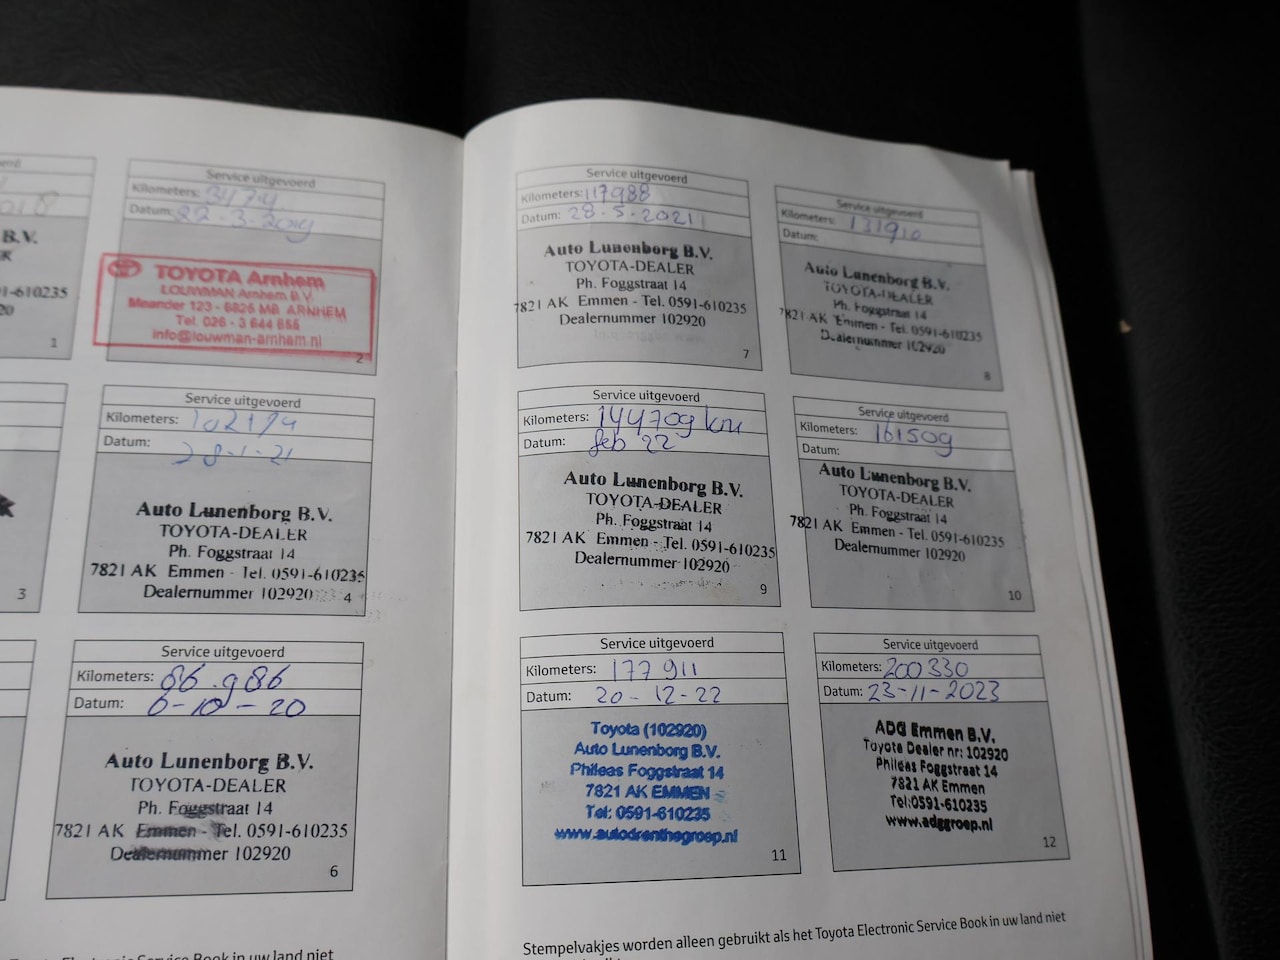 B.V.
91-610235
1
Service uitgevoerd
Kilometers:
Datum: 22-3-2019
TOYOTA Arnhem
LOUWMAN Arnhem B.V.
Meander 123 - 6825 MB ARNHEM
Tel. 026 - 3 644 655
info@louwman-arnhem.nl
2
3
Service uitgevoerd
Kilometers:
Datum: 28-1-21
Auto Lunenborg B.V.
TOYOTA-DEALER
Ph. Foggstraat 14
7821 AK Emmen - Tel. 0591-610235
Dealernummer 102920
4
Service uitgevoerd
Kilometers: 86.986
Datum: 6-10-20
Auto Lunenborg B.V.
TOYOTA-DEALER
Ph. Foggstraat 14
7821 AK Emmen - Tel. 0591-610235
Dealernummer 102920
6
Toyota Electronic Service Book in uw land niet
Service uitgevoerd
Kilometers: 117988
Datum: 28-5-2021
Auto Lunenborg B.V.
TOYOTA-DEALER
Ph. Foggstraat 14
7821 AK Emmen - Tel. 0591-610235
Dealernummer 102920
7
Service uitgevoerd
Kilometers: 131910
Datum:
Auto Lunenborg B.V.
TOYOTA-DEALER
Ph. Foggstraat 14
7821 AK Emmen - Tel. 0591-610235
Dealernummer 102920
8
Service uitgevoerd
Kilometers: 144709 km
Datum: feb 22
Auto Lunenborg B.V.
TOYOTA-DEALER
Ph. Foggstraat 14
7821 AK Emmen - Tel. 0591-610235
Dealernummer 102920
9
Service uitgevoerd
Kilometers: 161509
Datum:
Auto Lunenborg B.V.
TOYOTA-DEALER
Ph. Foggstraat 14
7821 AK Emmen - Tel. 0591-610235
Dealernummer 102920
10
Service uitgevoerd
Kilometers: 177911
Datum: 20-12-22
Toyota (102920)
Auto Lunenborg B.V.
Phileas Foggstraat 14
7821 AK EMMEN
Tel: 0591-610235
www.autodrenthegroep.nl
11
Service uitgevoerd
Kilometers: 200330
Datum: 23-11-2023
ADG Emmen B.V.
Toyota Dealer nr: 102920
Phileas Foggstraat 14
7821 AK Emmen
Tel:0591-610235
www.adggroep.nl
12
Stempelvakjes worden alleen gebruikt als het Toyota Electronic Service Book in uw land niet